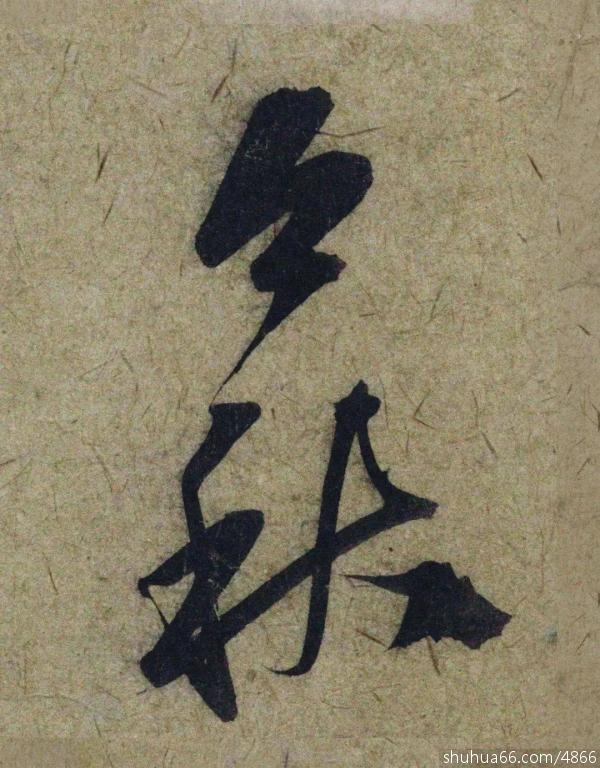 今秋
shuhua66.com/4866